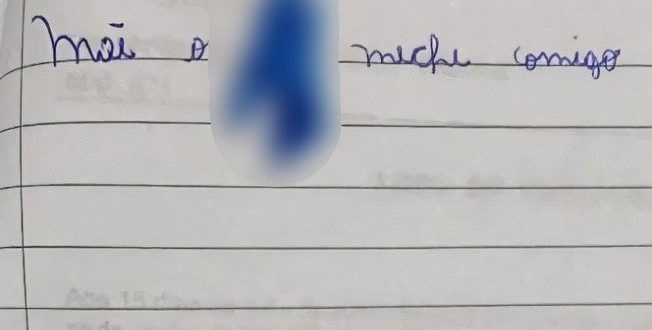 Mãi o meche comigo